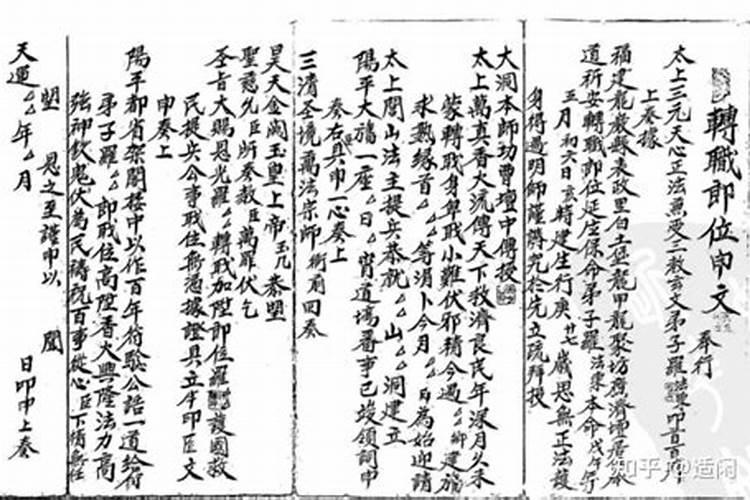 轉職即位申文
奉行
太上三元天心正法兼受三教玄文弟子羅法 叩首百
上奏據
福建龍巖縣表政里白土 龍甲龍聚坊齊濟壇居
道祈安轉職即位延生保命弟子羅法 本命戊午年
三月初六日 時建生行庚廿七歲思無正法護
身得過明師 先立疏拜投
大洞本師功曹壇中傳授
太上萬真香火流傳天下救濟良民年深月久未
蒙轉職身卑職小難伏邪精今過△△鄉建旛
求熟緣首△△△等涓卜今月△△日為始迎請
太上閭山法主提兵恭就△△山△洞建立
陽平大旛一座△日△宵道場醮事已竣領詞申
奏右具申一心奏上
三清圣境萬法宗師 前 回奏
昊天金闕玉皇上帝玉几奏盟
聖慈允臣所奏救臣萬罪伏乞
圣旨大賜恩光羅△△轉職加陞即位羅 護國救
民提兵公事職位無憑據證具立半印臣文
申奏上
陽平都省架閣樓中以作百年符驗公語一道給付
弟子羅△△即職位高陞香火興隆法力高
強神欽鬼伏為民禱祝百事從心臣下情無任
盟 恩之至謹申以 聞
天運△△年△月 日叩申上奏
知乎 @适闲